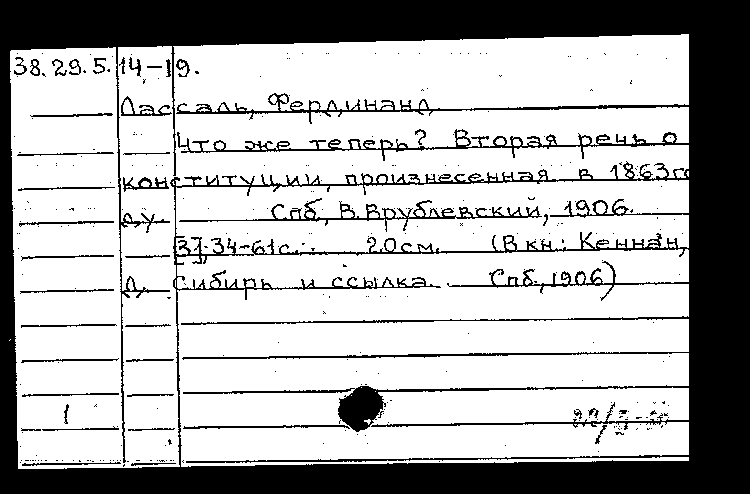 38.29.5.14-19.
Лассаль, Фердинанд
Что же теперь? Вторая речь о
конституции, произнесенная в 1863го
ду. Спб, В. Врублевский, 1906.
[3], 34-61 с. 20см. (В кн.: Кеннан,
Д. Сибирь и ссылка. Спб., 1906)
1